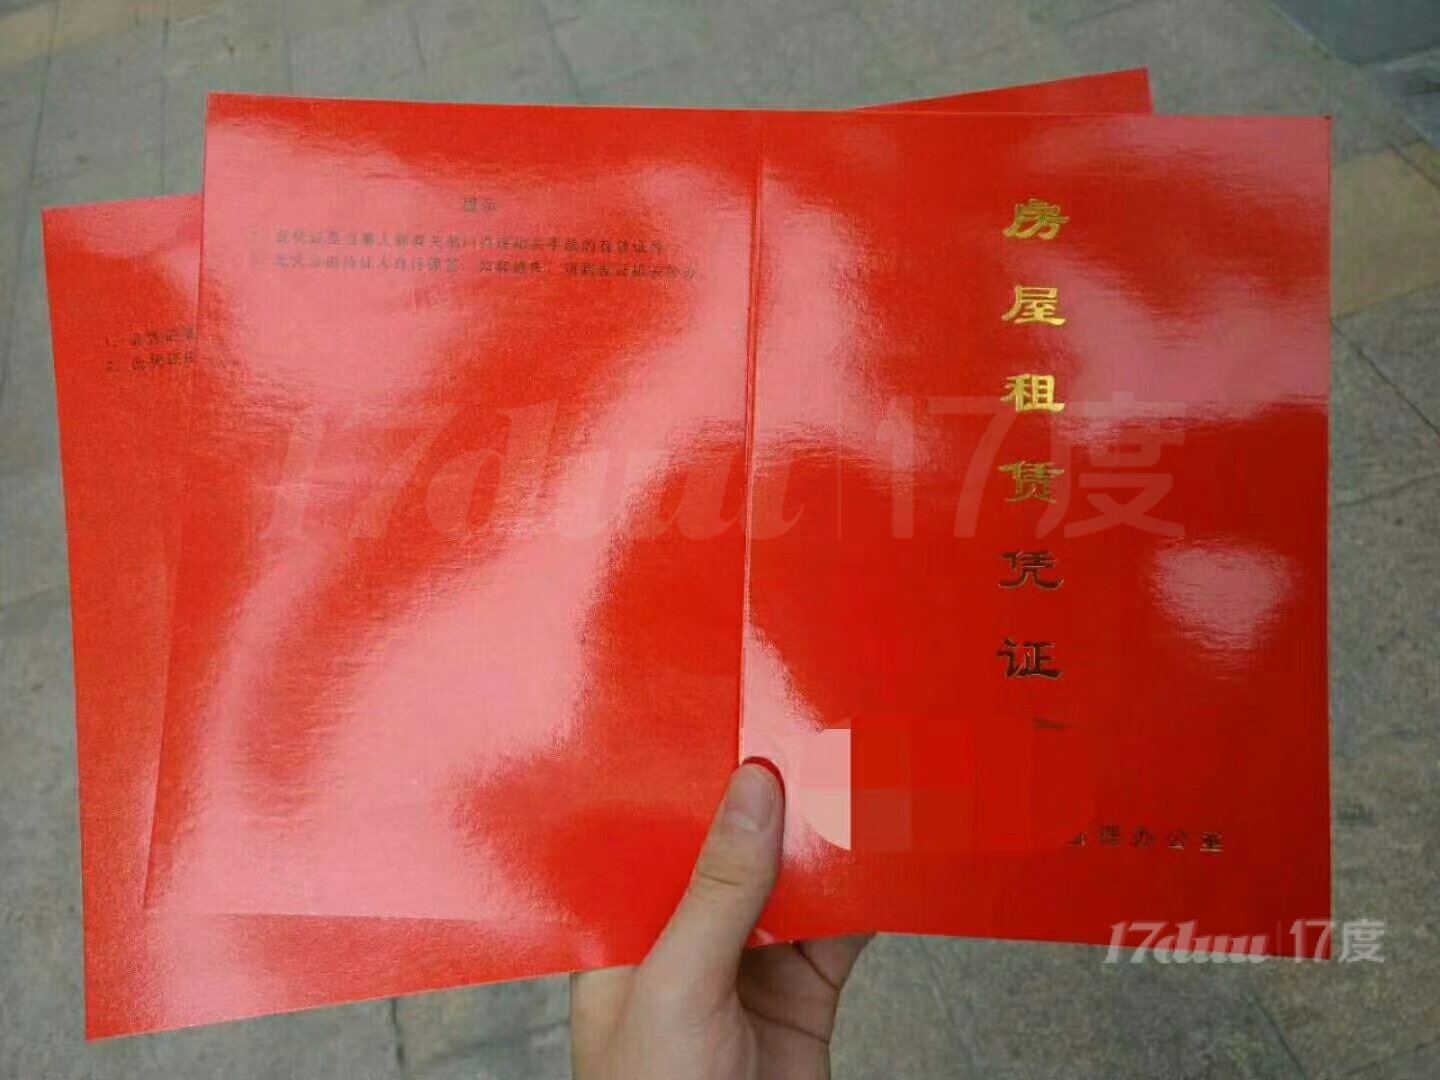 提示
1. 此凭证是当事人到有关部门办理相关手续的有效证件
2. 此凭证由持证人自行保管，如有遗失，请到发证机关补办
房屋租赁凭证
管理办公室
1. 此凭证是
2. 此凭证由
17duu|17度
17duu|17度